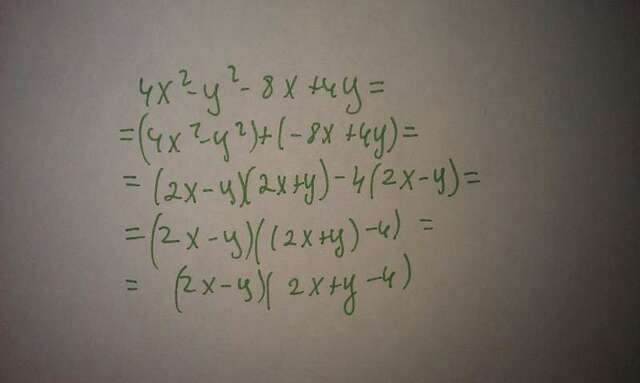 4x²-y²-8x+4y=
=(4x²-y²)+(-8x+4y)=
=(2x-y)(2x+y)-4(2x-y)=
=(2x-y)((2x+y)-4)=
=(2x-y)(2x+y-4)